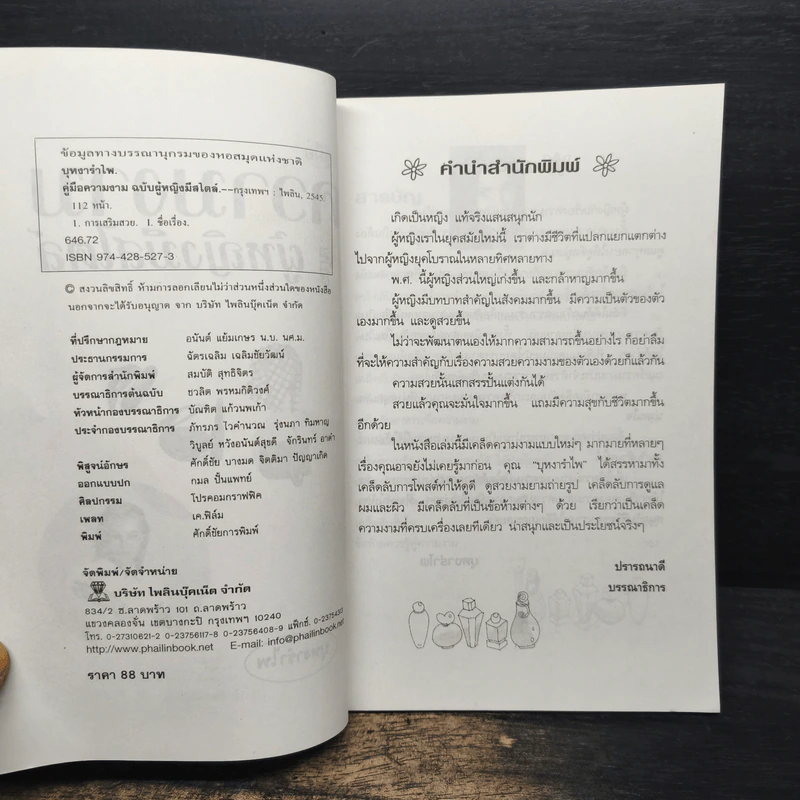 ข้อมูลทางบรรณานุกรมของหอสมุดแห่งชาติ
บุหงารำไพ.
คู่มือความงาม ฉบับผู้หญิงมีสไตล์.--กรุงเทพฯ : ไพลิน, 2545.
112 หน้า.
1. การเสริมสวย. I. ชื่อเรื่อง.
646.72
ISBN 974-428-527-3
© สงวนลิขสิทธิ์ ห้ามการลอกเลียนไม่ว่าส่วนหนึ่งส่วนใดของหนังสือ
นอกจากจะได้รับอนุญาต จาก บริษัท ไพลินบุ๊คเน็ต จำกัด
ที่ปรึกษากฎหมาย อนันต์ แย้มเกษร น.บ. นศ.ม.
ประธานกรรมการ ฉัตรเฉลิม เฉลิมชัยวัฒน์
ผู้จัดการสำนักพิมพ์ สมบัติ สุทธิจิตร
บรรณาธิการต้นฉบับ ชวลิต พรหมกิติวงศ์
หัวหน้ากองบรรณาธิการ บัณฑิต แก้วนพเก้า
ประจำกองบรรณาธิการ ภัทรภร ไวคำนวณ รุ่งนภา ทิมหาญ
วิบูลย์ หวังอนันต์สุขดี จักรินทร์ อาดำ
พิสูจน์อักษร ศักดิ์ชัย บางมด จิตติมา ปัญญาเกิด
ออกแบบปก กมล ปั้นแพทย์
ศิลปกรรม โปรคอมกราฟฟิค
เพลท เค.ฟิล์ม
พิมพ์ ศักดิ์ชัยการพิมพ์
จัดพิมพ์/จัดจำหน่าย
บริษัท ไพลินบุ๊คเน็ต จำกัด
834/2 ซ.ลาดพร้าว 101 ถ.ลาดพร้าว
แขวงคลองจั่น เขตบางกะปิ กรุงเทพฯ 10240
โทร. 0-27310621-2 0-23756117-8 0-23756408-9 แฟ็กซ์.
http://www.phailinbook.net E-mail: info@phailinbook.net
ราคา 88 บาท
คำนำสำนักพิมพ์
เกิดเป็นหญิง แท้จริงแสนสนุกนัก
ผู้หญิงเราในยุคสมัยใหม่นี้ เราต่างมีชีวิตที่แปลกแยกแตกต่าง
ไปจากผู้หญิงยุคโบราณในหลายทิศหลายทาง
พ.ศ. นี้ผู้หญิงส่วนใหญ่เก่งขึ้น และกล้าหาญมากขึ้น
ผู้หญิงมีบทบาทสำคัญในสังคมมากขึ้น มีความเป็นตัวของตัว
เองมากขึ้น และดูสวยขึ้น
ไม่ว่าจะพัฒนาตนเองให้มากความสามารถขึ้นอย่างไร ก็อย่าลืม
ที่จะให้ความสำคัญกับเรื่องความสวยความงามของตัวเองด้วยก็แล้วกัน
ความสวยนั้นเสกสรรปั้นแต่งกันได้
สวยแล้วคุณจะมั่นใจมากขึ้น แถมมีความสุขกับชีวิตมากขึ้น
อีกด้วย
ในหนังสือเล่มนี้มีเคล็ดความงามแบบใหม่ๆ มากมายที่หลายๆ
เรื่องคุณอาจยังไม่เคยรู้มาก่อน คุณ "บุหงารำไพ" ได้สรรหามาทั้ง
เคล็ดลับการโพสต์ท่าให้ดูดี ดูสวยงามยามถ่ายรูป เคล็ดลับการดูแล
ผมและผิว มีเคล็ดลับที่เป็นข้อห้ามต่างๆ ด้วย เรียกว่าเป็นเคล็ด
ความงามที่ครบเครื่องเลยทีเดียว น่าสนุกและเป็นประโยชน์จริงๆ
ปรารถนาดี
บรรณาธิการ